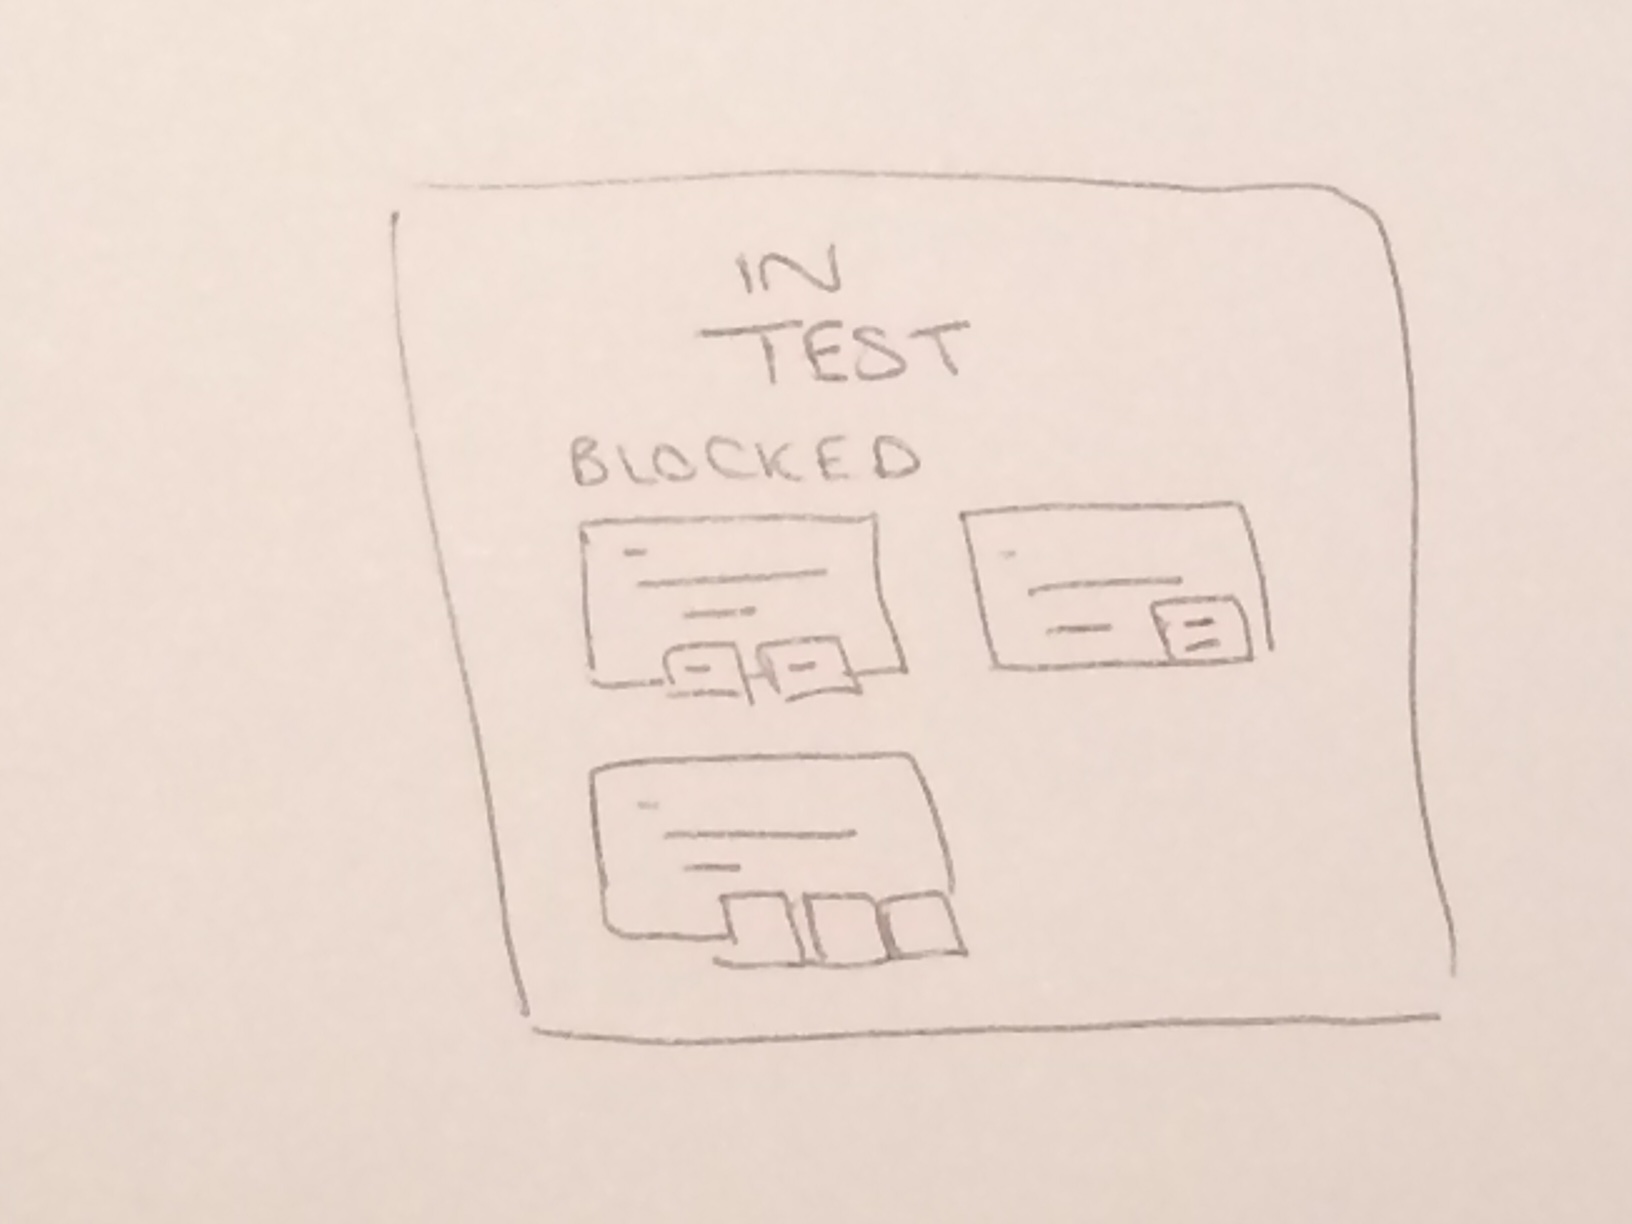 IN
TEST
BLOCKED